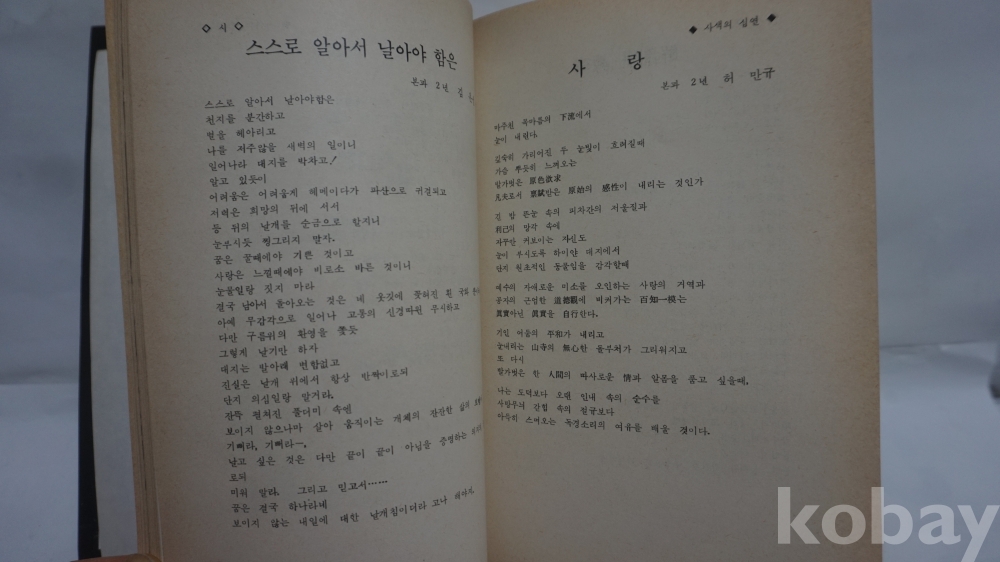 ◇ 시 ◇
스스로 알아서 날아야 함은
본과 2년 김
스스로 알아서 날아야함은
천지를 분간하고
별을 헤아리고
나를 저주않을 새벽의 일이니
일어나라 대지를 박차고!
알고 있듯이
어려움은 어려움게 헤메이다가 파산으로 귀결되고
저력은 희망의 뒤에 서서
등 위의 날개를 순금으로 할지니
눈부시듯 찡그리지 말자.
꿈은 꿀때에야 기쁜 것이고
사랑은 느낄때에야 비로소 바른 것이니
눈물일랑 짓지 마라
결국 남아서 돌아오는 것은 네 옷깃에 흰 국화
아예 무감각으로 일어나 고통의 신경따윈 무시하고
다만 구름위의 환영을 쫓듯
그렇게 날기만 하자
대지는 발아래 변함없고
진실은 날개 위에서 항상 반짝이로되
단지 의심일랑 말거라.
잔뜩 펼쳐진 풀더미 속엔
보이지 않으나마 살아 움직이는 개체의 잔잔한 삶의
기뻐라, 기뻐라—.
날고 싶은 것은 다만 끝이 끝이 아님을 증명하는
로되
미워 말라, 그리고 믿고서……
꿈은 결국 하나라네
보이지 않는 내일에 대한 날개침이더라 고나 해야지.
◆ 사색의 심연 ◆
사 랑
본과 2년 許 만규
마주친 육아들의 下流에서
숯이 내린다.
깊숙히 가리어진 두 눈빛이 흐려질때
가슴 뿌듯히 느껴오는
발가벗은 原色欲求
凡夫로서 稟賦받은 原始의 感性이 내리는 것인가
긴 밤 뜬눈 속의 저울질과
利己의 망각 속에
자꾸만 커보이는 자신도
눈이 부시도록 하이얀 대지에서
단지 원초적인 동물임을 감각할때
예수의 자애로운 미소를 오인하는 사랑의 거역과
공자의 근엄한 道德觀에 비켜가는 百知一模는
眞實아닌 眞實을 自行한다.
기인 어둠의 平和가 내리고
숨내리는 山寺의 無心한 돌부처가 그리워지고
또 다시
발가벗은 한 人間의 따사로운 情과 알몸을 풀고 싶을때,
나는 도덕보다 오랜 인내 속의 순수를
사랑무늬 갇힐 속의 절규보다
아슥히 스며오는 독경소리의 여유를 배울 것이다.
kobay